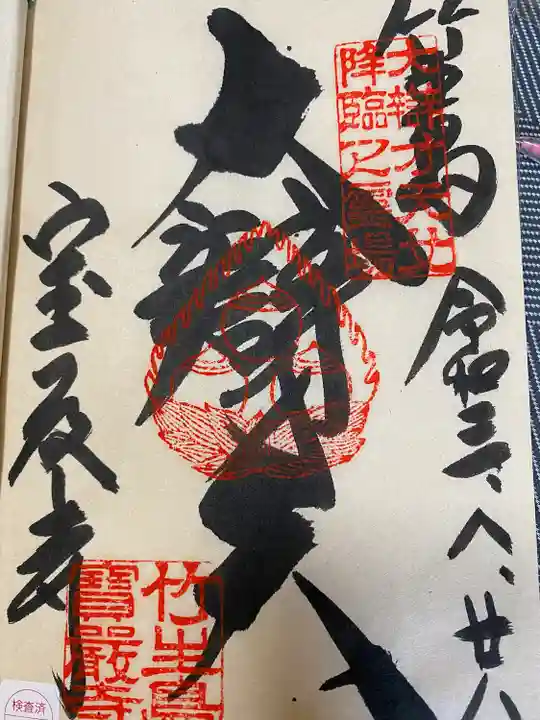 竹生島
令和三、八、廿八
大辯才天
宝厳寺
大辯才天女
降臨之霊島
竹生島
寶嚴寺
検査済